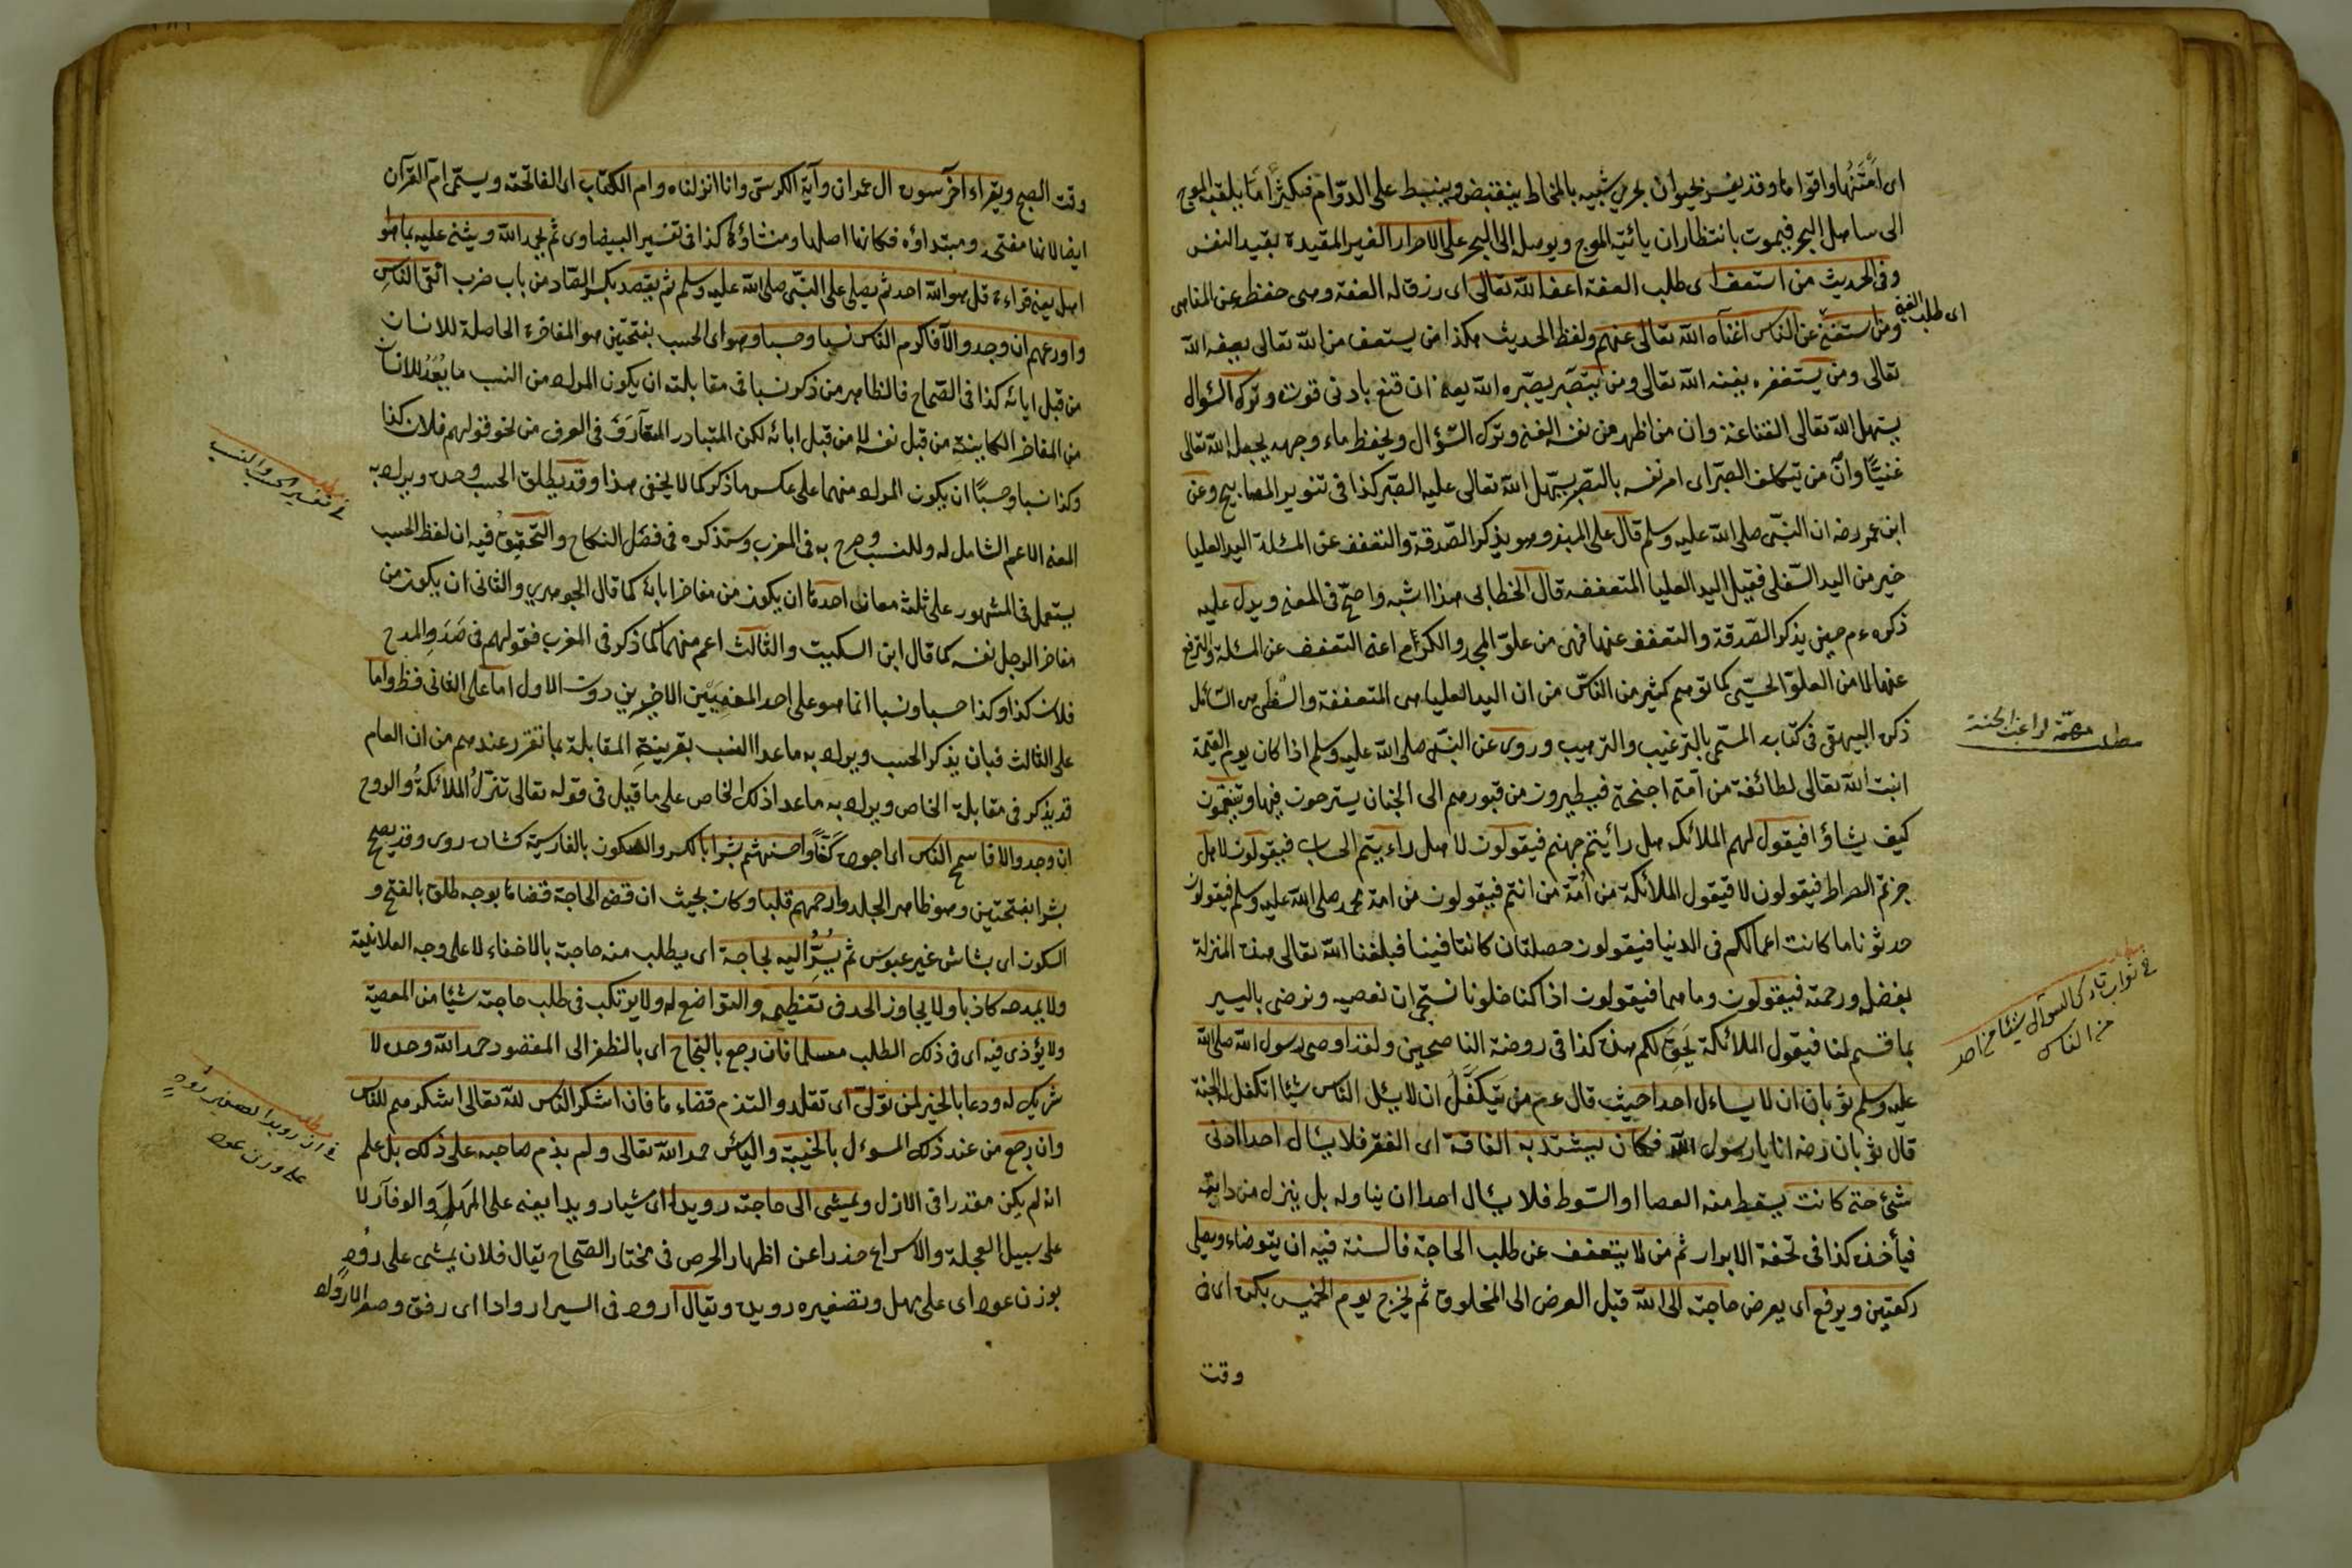 اى امتنها واقواما وقد يفسر بحيوان بحرى شبيه بالمخاط ينقبض وينبسط على الدوام فكثيرا ما يلقيه الموج
الى ساحل البحر فيموت بانتظار ان يأتيه الموج ويوصله الى البحر على الاحرار الغير المقيدة بقيد النفس
وفى الحديث من استعف اى طلب العفة اعفه الله تعالى اى رزق له العفة وهى حفظ عن المناهى
اى طلب الغنى
ومن استغنى عن الناس اغناه الله تعالى عنهم ولفظ الحديث هكذا من يستعف من الله تعالى يعفه الله
تعالى ومن يستغن يغنه الله تعالى ومن يتصبر يصبره الله يعنى ان قنع بادنى قوت وترك السؤال
يسهل الله تعالى القناعة وان من اظهر من نفسه الغنى وترك السؤال ويحفظ ماء وجهه يجعل الله تعالى
غنيا وان من تكلف الصبر اى امر نفسه بالتصبر يسهل الله تعالى عليه الصبر كذا فى تنوير المصابيح وعن
ابن عمر رضه ان النبى صلى الله عليه وسلم قال على المنبر وهو يذكر الصدقة والتعفف عن المسئلة اليد العليا
خير من اليد السفلى فقيل اليد العليا المتعففة قال الخطابى هذا اشبه واصح فى المعنى ويدل عليه
ذكره ءم حين يذكر الصدقة والتعفف عنها فهى من علو المجد والكرام اعنى التعفف عن المسئلة والترفع
عنها لا من العلو الحسى كما توهم كثير من الناس من ان اليد العليا هى المتعففة والسفلى هى السائل
ذكره البيهقى فى كتابه المسمى بالترغيب والترهيب وروى عن النبى صلى الله عليه وسلم اذا كان يوم القيمة
مطلب مهمة لراغب الجنة
انبت الله تعالى لطائفة من امته اجنحة فيطيرون من قبورهم الى الجنان يسرحون فيها ويتنعمون
كيف يشاؤا فيقول لهم الملائكة هل رأيتم جهنم فيقولون لا هل راءيتم الحساب فيقولون لا هل
جزتم الصراط فيقولون لا فيقول الملائكة من امة من انتم فيقولون من امة محمد صلى الله عليه وسلم فيقولون
حدثونا ما كانت اعمالكم فى الدنيا فيقولون خصلتان كانتا فينا فبلغنا الله تعالى هذه المنزلة
بفضله ورحمته فيقولون وما هما فيقولون اذا كنا خلونا نستحى ان نعصيه ونرضى باليسير
مطلب فى ثواب تارك السؤال شيئا من احد
من الناس
بما قسم لنا فيقول الملائكة يحق لكم هذه كذا فى روضة الناصحين ولقد اوصى رسول الله صلى الله
عليه وسلم ثوبان ان لا يساءل احدا حيث قال عم من يتكفل ان لا يسئل الناس شيئا اتكفل له الجنة
قال ثوبان رضه انا يا رسول الله فكان يشتد به الفاقة اى الفقر فلا يسأل احدا ادنى
شئ حتى كانت يسقط منه العصا او السوط فلا يسأل احدا ان يناوله بل ينزل من دابته
فيأخذه كذا فى تحفة الابرار ثم من لا يتعفف عن طلب الحاجة فالسنة فيه ان يتوضاء ويصلى
ركعتين ويرفع اى يعرض حاجته الى الله قبل العرض الى المخلوق ثم يخرج يوم الخميس بكرة اى فى
وقت
وقت الصبح ويقراء آخر سورة ال عمران وآية الكرسى وانا انزلناه وام الكتاب اى الفاتحة ويسمى ام القرآن
ايضا لانها مفتحه ومبتداؤه فكانها اصلها ومنشاؤه كذا فى تفسير البيضاوى ثم يحمد الله ويثنى عليه بما هو
اهله يعنى قراءة قل هو الله احد ثم يصلى على النبى صلى الله عليه وسلم ثم يقصد بكسر الصاد من باب ضرب اتقى الناس
واورعهم ان وجد والا فاكرم الناس نسبا وحسبا وهو اى الحسب بفتحتين هو المفاخرة الحاصلة للانسان
من قبل ابائه كذا فى الصحاح فالظاهر من ذكر نسبا فى مقابلته ان يكون المراد من النسب ما يعد للانسان
من المفاخر الكاينة من قبل نفسه لا من قبل ابائه لكن المتبادر المتعارف فى العرف من نحو قولهم فلان كذا
وكذا نسبا وحسبا ان يكون المراد منهما على عكس ما ذكر كما لا يخفى هذا وقد يطلق الحسب وحده ويراد به
مطلب فى تفسير الحسب والنسب
المعنى الاعم الشامل له وللنسب وصرح به فى المغرب وستذكره فى فصل النكاح والتحقيق فيه ان لفظ الحسب
يستعمل فى المشهور على ثلثة معان احدها ان يكون من مفاخر ابائه كما قال الجوهرى والثانى ان يكون من
مفاخر الرجل نفسه كما قال ابن السكيت والثالث اعم منهما كما ذكر فى المغرب فقولهم فى صدد المدح
فلان كذا وكذا حسبا ونسبا انما هو على احد المعنيين الاخيرين دون الاول اما على الثانى فظ واما
على الثالث فبان يذكر الحسب ويراد به ماعدا النسب بقرينة المقابلة بما تقرر عندهم من ان العام
قد يذكر فى مقابلة الخاص ويراد به ماعدا ذلك الخاص على ما قيل فى قوله تعالى تنزل الملائكة والروح
ان وجد والا فاسمح الناس اى اجوده كفا واحسنهم بشرا بالكسر والسكون بالفارسية كشاده روى وقد يصح
بشرا بفتحتين وهو ظاهر الجلد وارحمهم قلبا وكان بحيث ان قضى الحاجة قضاها بوجه طلق بالفتح و
السكون اى بشاش غير عبوس ثم يسر اليه لحاجة اى يطلب منه حاجته بالاخفاء لا على وجه العلانية
ولا يمدحه كاذبا ولا يجاوز الحد فى تعظيمه والتواضع له ولا يرتكب فى طلب حاجته شيئا من المعصية
ولا يؤذى فيه اى فى ذلك الطلب مسلما فان رجع بالنجاح اى بالظفر الى المقصود حمد الله وحده لا
شريك له ودعا بالخير لمن تولى اى تقلد والتزم قضاء ها فان اشكر الناس لله تعالى اشكرهم للناس
وان رجع من عند ذلك المسؤل بالخيبة والياس حمد الله تعالى ولم يذم صاحبه على ذلك بل علم
مطلب فى ان رويدا تصغير رود
على وزن عود
انه لم يكن مقدرا فى الازل ويمشى الى حاجته رويدا اى شيار ويدا يعنى على المهل والوقار لا
على سبيل العجلة والاسراع حذرا عن اظهار الحرص فى مختار الصحاح يقال فلان يمشى على رود
بوزن عود اى على مهل وتصغيره رويد ويقال ارود فى السير اروادا اى رفق وصغر الارواد